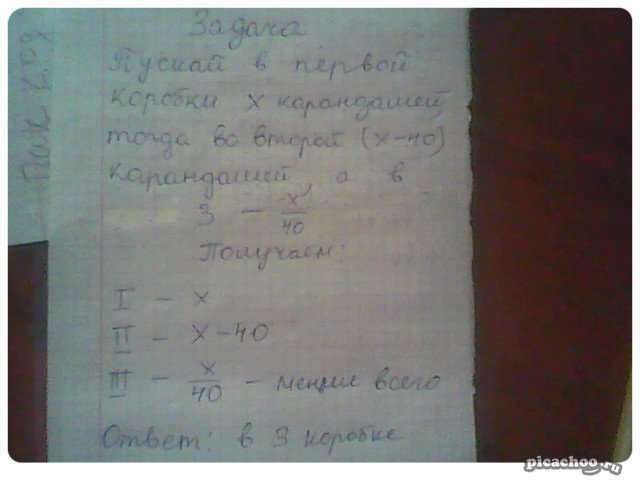 Задача
Пускай в первой
коробки х карандашей,
тогда во второй (х-40)
карандашей а в
3 - х/40
Получаем:
I - х
II - х-40
III - х/40 - менше всего
Ответ: в 3 коробке
picachoo.ru